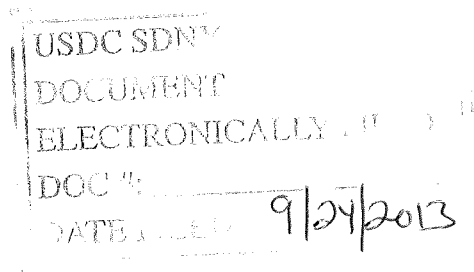 USDC SDNY
DOCUMENT
ELECTRONICALLY
DOC #:
DATE 9/24/2013